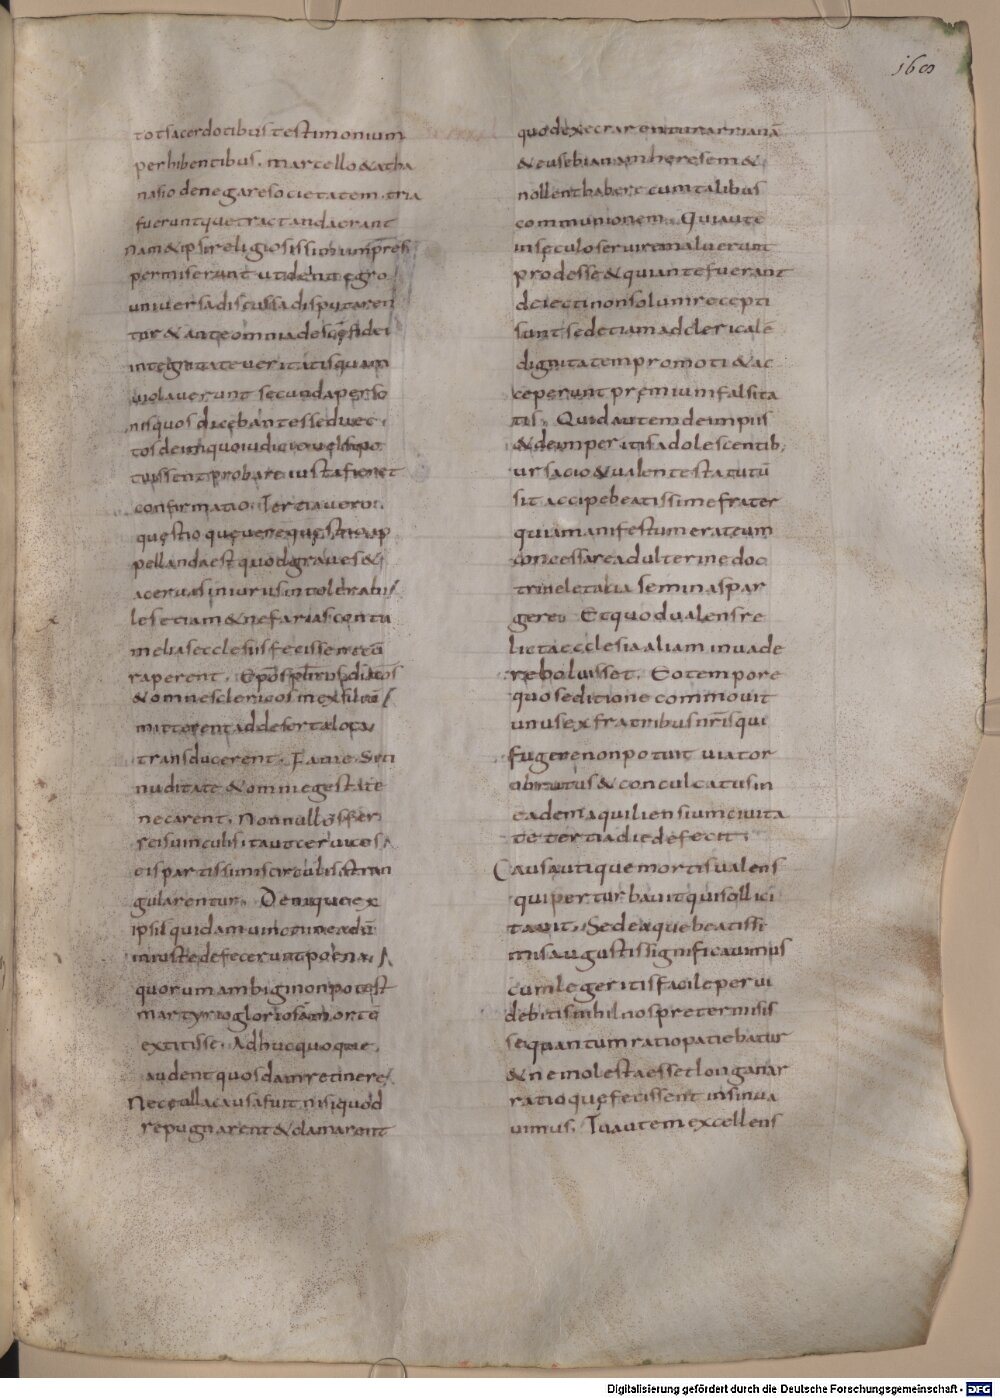 168
tot sacerdotibus testimonium
perhibentibus. marcello & atha
nasio denegare societatem. tria
fuerunt que tractanda erant
nam & ipsi religiosissimi impr̄es
permiserunt ut de integro
universa discussa disputaren
tur & ante omnia de sc̄a fidei
integritate veritatis quam
violaverunt secunda perso
nis quos dicebant esse deiec
tos de iniquo iudicio vel si po
tuissent probare iusta fieret
confirmatio. Tertia vero
questio que vere questio ap
pellanda est quod graves &
acervas iniurias intolerabi
les etiam & nefarias contu
melias ecclesiis fecissent cū
raperent. Ep̄os pr̄bros diac̄os
& omnes clericos in exsiliū
mitterent ad deserta loca
transducerent. Fame Siti
nuditate & omni egestate
necarent. Nonnullos fer
reis vinculis ita ut cervices
eis partissimis circulis stran
gularentur. Denique ex
ipsis quidam vincti in eadē
iniuste defecerunt poena.
quorum ambigi non potest
martyrio gloriosā mortē
extitisse. Adhuc quoque
audent quosdam retinere
Nec ulla causa fuit nisi quod
repugnarent & clamarent
quod execrarentur arrianā
& eusebianam heresem &
nollent habere cum talibus
communionem. Qui autē
in seculo servire maluerunt
prodesse & qui ante fuerant
deiecti non solum recepti
sunt sed etiam ad clericalē
dignitatem promoti & ac
ceperunt premium falsita
tis. Quid autem de impiis
& de imperitis adolescentib;
ursacio & valente statutū
sit accipe beatissime frater
quia manifestum erat eum
non cessare adulterine doc
trine letalia semina spar
gere. Et quod valens re
licta ecclesia aliam invade
re voluisset. Eo tempore
quo seditione commovit
unus ex fratribus nr̄is qui
fugere non potuit viator
obrutus & conculcatus in
eadem aquiliensium civita
te tertia die defecit.
Causa utique mortis valens
qui perturbavit qui sollici
tavit. Sed ea que beatissi
mis augustis significavimus
cum legeritis facile pervi
debitis nihil nos pretermisis
se quantum ratio patiebatur
& ne molesta esset longa nar
ratio que fecissent insinua
vimus. Tua autem excellens
Digitalisierung gefördert durch die Deutsche Forschungsgemeinschaft - DFG